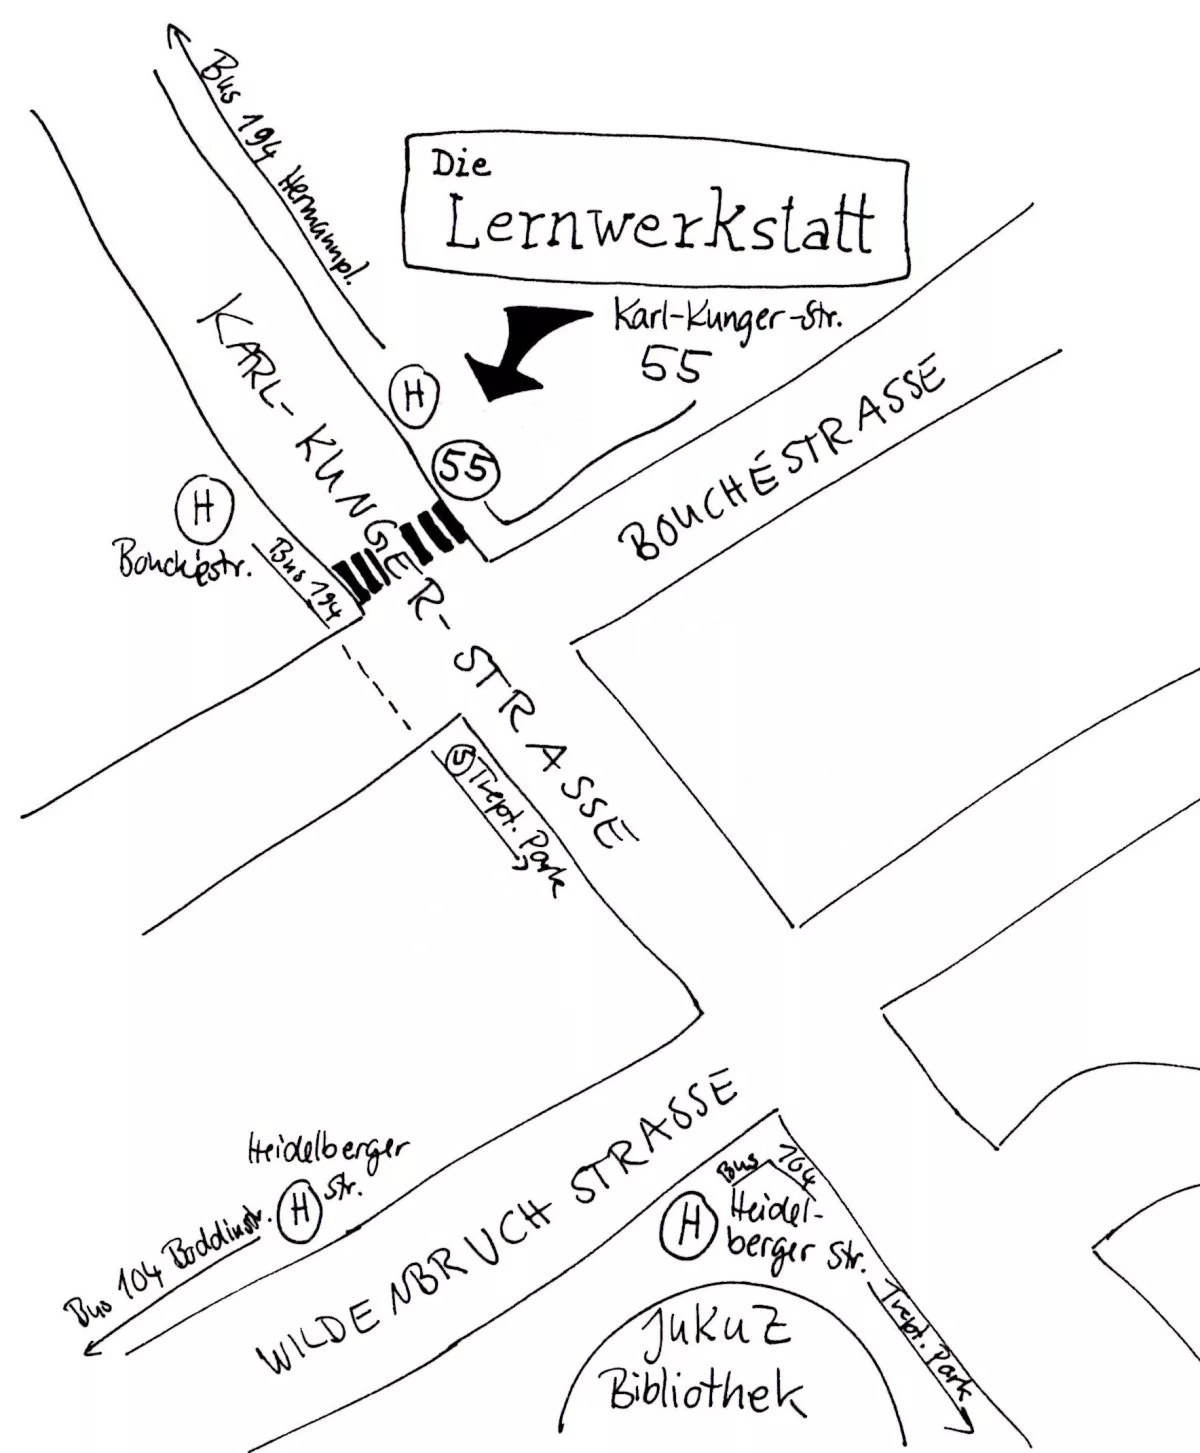 Bus 194 Hermannpl.
Die
Lernwerkstatt
Karl-Kunger-Str.
55
H
55
KARL-KUNGER-STRASSE
BOUCHÉSTRASSE
H
Bouchéstr.
Bus 194
S Trept. Park
WILDENBRUCH STRASSE
Heidelberger
Str.
H
Bus 104 Boddinstr.
Bus 164
H
Heidel-
berger Str.
Trept. Park
JuKuZ
Bibliothek